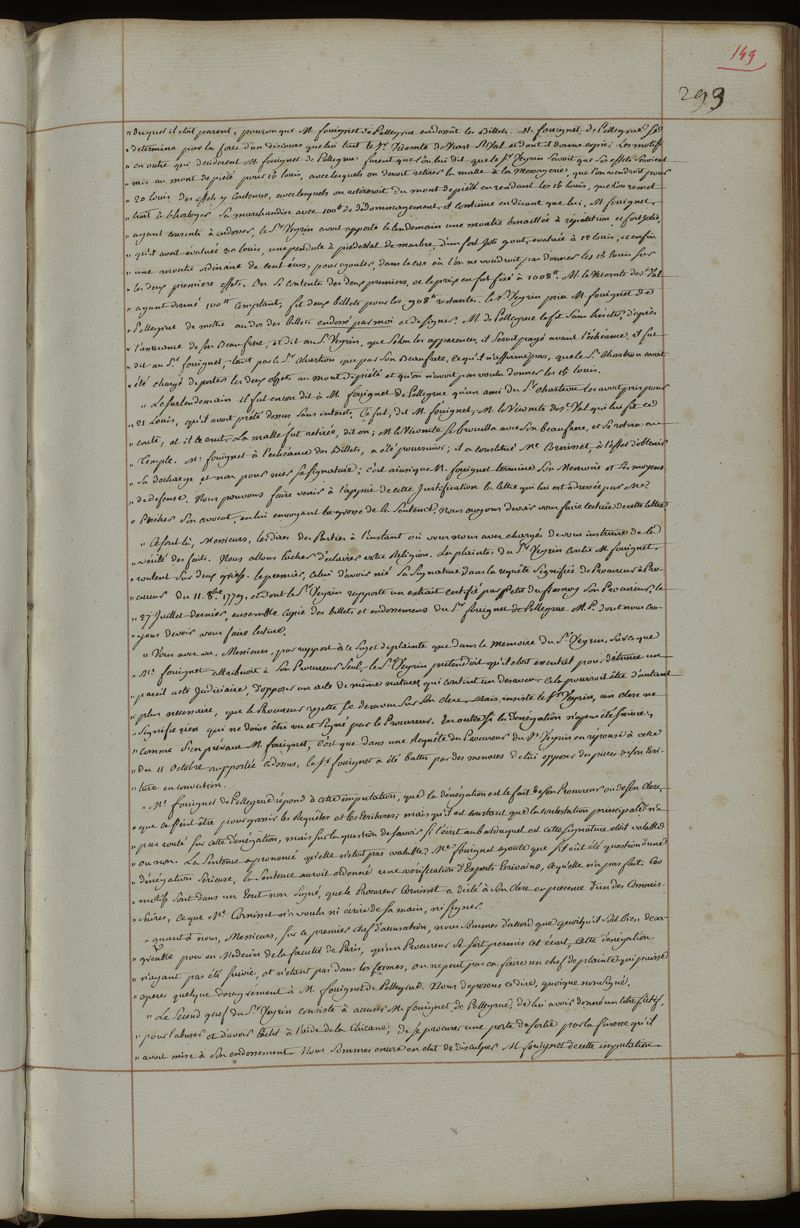 149
293
" duquel il était parent, pourvu que M. fouignet de Pellegrue endossât les Billets. M. fouignet de Pellegrue se
" determina par la force d'un discours que lui tint le Vicomte de St Val et dont il donne copie; Les motifs
" en outre qui déciderent M. fouignet de Pellegrue furent que l'on lui dit que le Sr. Veyrin savoit que ses effets étoient
" mis au mont de piété pour 15 louis, avec lesquels on devoit retirer la malle à la Messagerie, que l'on vendroit pour
" 20 louis des effets y contenus, avec lesquels on retireroit du mont de piété en rendant les 15 louis, que l'on remet
" troit à l'horloger sa marchandise avec 100tt de dédommagement, et continue en disant que lui, M. fouignet,
" ayant consenti à endosser, le Sr. Veyrin avoit apporté le lendemain une montre émaillée à répétition et fort jolie,
" qu'il avoit évaluée 30 louis, une pendule à piedestal de marbre, d'un fort joli gout, évaluée à 12 louis, et enfin
" une montre ordinaire de cent écus, pour ajouter, dans le cas où l'on ne voudroit pas donner les 15 louis sur
" les deux premiers effets. On se contenta des deux premiers, et le prix en fut fixé à 1008tt. M. le Vicomte de St. Val
" ayant donné 100tt comptant, fit deux billets pour les 908tt restantes. le Sr. Veyrin pria M. fouignet de
" Pellegrue de mettre au dos des billets endossé par moi et de signer. M. de Pellegrue le fit sans hésiter, d'après
" l'assurance de son Beaufrere, et dit au Sr. Veyrin, que selon les apparences, il seroit payé avant l'échéance, il fut
" dit au Sr. fouignet, tant par le Sr. Charetton que par son Beaufrere, ce qu'il n'affirme pas, que le Sr. Charetton avoit
" été chargé de porter les deux effets au mont de piété et qu'on n'avoit pas voulu donner les 15 louis.
" Le surlendemain il fut encore dit à M. fouignet de Pellegrue qu'un ami du Sr. Charetton les avoit pris pour
" 21 Louis, qu'il avoit prêté dessus sans interet. Ce fut, dit M. fouignet, M. le Vicomte de St. Val qui lui fit ce
" conte, et il le crut. La malle fut retirée, dit on; M. le Vicomte se brouilla avec son beaufrere, et se retira au
" Temple. M. fouignet à l'échéance des Billets, a été poursuivi; il a constitué Me. Cornisset, à l'effet d'obtenir
" sa décharge et non pour nier sa signature; c'est ainsi que M. fouignet termine son Memoire et ses moyens
" de defense. Nous pouvons faire venir à l'appuie de cette Justification la lettre qui lui est adressée par Me.
" Porcher son avocat, en lui envoyant la grosse de la Sentence. Nous croyons devoir vous faire lecture de cette lettre
" Ce sont là, Messieurs, les dires des Parties à l'instant où vous nous avez chargés de vous instruire de la
" vérité des faits. Nous allons tâcher d'éclairer votre Religion. Les plaintes du Sr. Veyrin contre M. fouignet,
" roulent sur deux griefs. le premier, celui d'avoir nié sa Signature, dans la requête signifiée de Procureur à Pro
" cureur du 11. 8bre 1779, et dont le Sr. Veyrin rapporte un extrait certifié par Petit du fresnoy son Procureur, le
" 27 Juillet dernier, ensemble copie des billets et endossemens du Sr. fouignet de Pellegrue M. P. dont nous cro
" yons devoir vous faire lecture.
" Vous avez vu, Messieurs, par rapport à ce Sujet de plainte que dans le Memoire du Sr. Veyrin, sur ce que
" Mr. fouignet attribuoit à son Procureur seul, le Sr. Veyrin prétendoit qu'il étoit essentiel pour détruire un
" pareil acte judiciaire, d'opposer un acte de même nature, qui contint un desaveu. Cela pourroit être d'autant
" plus necessaire, que le Procureur rejette le desaveu sur son clerc, mais, insiste le Sr. Veyrin, un clerc ne
" signifie rien qui ne doive être vu et signé par le Procureur. En outre si la dénégation n'a pas été suivie,
" comme s'en prévaut M. fouignet, c'est que dans une Requête du Procureur du Sr. Veyrin en réponse à celle
" du 11 Octobre rapportée ci dessus, le Sr. fouignet a été battu par des menaces de lui opposer des pieces de son écri
" ture en conviction.
" Mr. fouignet de Pellegrue répond à cette imputation, que la dénégation est le fait de son Procureur ou de son Clerc,
" que ce peut être pour grossir les Requêtes et les Ecritures; mais qu'il est constant que la contestation principale n'a
" pas roulé sur cette dénégation, mais sur la question de savoir si l'écrit au bas duquel est cette signature étoit valable
" ou non. La Sentence a prononcé qu'elle n'étoit pas valable. Mr. fouignet ajoute que s'il eût été question d'une
" dénégation Sérieuse, la Sentence auroit ordonné une vérification d'Experts Ecrivains, ce qu'elle n'a pas fait. Ces
" motifs sont dans un Ecrit non Signé, que le Procureur Cornisset a dicté à son Clerc en présence d'un des Commis
" saires, ce que Me. Cornisset n'a voulu ni écrire de sa main, ni signer.
" quant à nous, Messieurs, sur ce premier chef d'accusation, nous sommes d'accord que quoiqu'il soit bien desa
" gréable pour un Medecin de la faculté de Paris, qu'un Procureur se soit permis cet écrit, cette dénégation
" n'ayant pas été suivie, et n'étant pas dans les formes, on ne peut pas en faire un chef de plainte qui puisse
" operer quelque desagrement à M. fouignet de Pellegrue. Nous déposons ce dire, quoique non signé.
" Le Second grief du Sr. Veyrin consiste à accuser M. fouignet de Pellegrue, de lui avoir donné un titre fictif,
" pour l'abuser et d'avoir tâché à l'aide de la Chicane, de se procurer une porte de sortie par la finesse qu'il
" avoit mise à son endossement. Nous Sommes encore en état de disculper M. fouignet de cette imputation